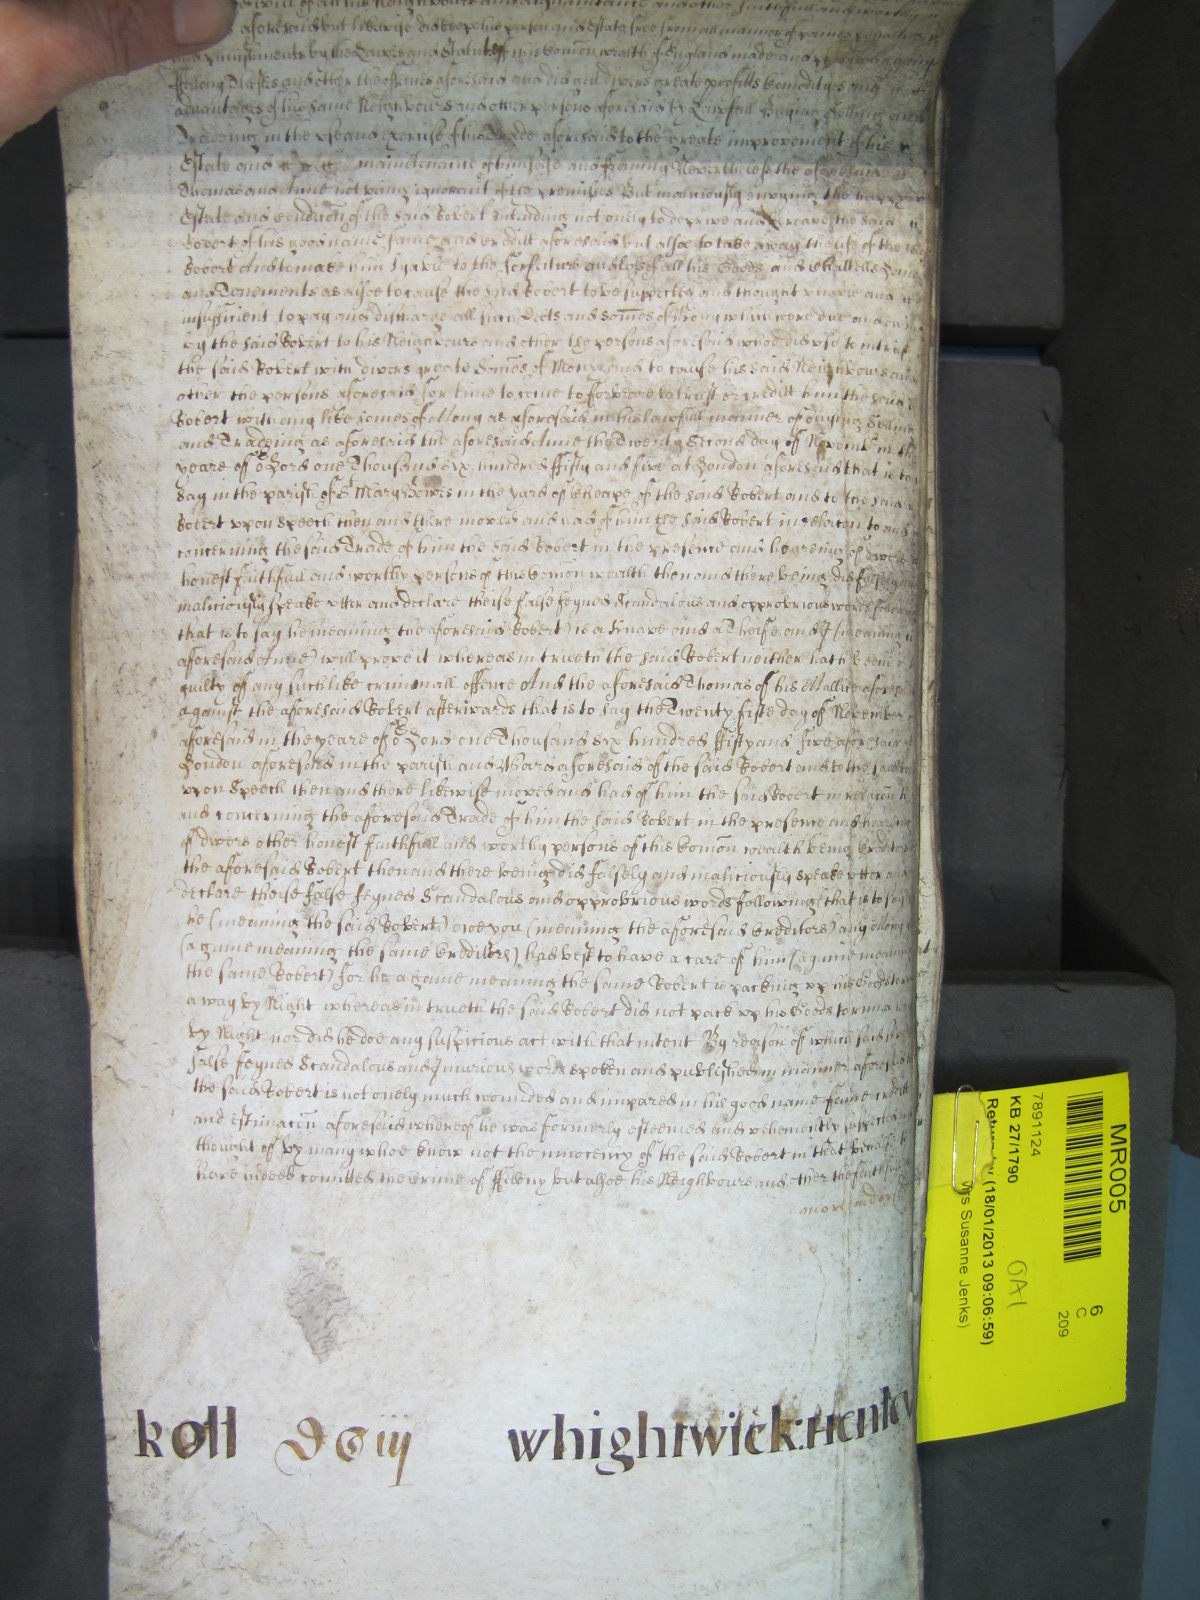 will of all his Neighbours and
aforesaid but likewise did keepe his person and Estate free from all manner of paines penaltyes
and punishments by the Lawes and Statutes of this Comon wealth of England made and
ffellony Thefts and other the offences aforesaid and did gaine divers greate profitts Comodityes and
advantages of the same Neighbours and other persons aforesaid by Lawfull Buying Selling and
in the use and exercise of his Trade aforesaid to the greate improvement of his
Estate and maintenance of himselfe and ffamily Neverthelesse the aforesaid
Thomas and Anne not being ignorant of the premisses But maliciously envying the happy
Estate and condicon of the said Robert intending not onely to deprive and the said
Robert of his good name fame and creditt aforesaid but alsoe to take away the life of the
Robert And to make him lyable to the forfeiture and losse of all his Goods and Chattells
and Tenements as alsoe to cause the said Robert to be suspected and thought and
insufficient to pay and discharge all such Debts and somes of Mony which were due and
by the said Robert to his Neighbours and other the persons aforesaid whoe did use to intrust
the said Robert with divers greate Somes of Mony and to cause his said Neighbours and
other the persons aforesaid for time to come to forbeare to trust or creditt him the said
Robert with any like Somes of Mony as aforesaid in his lawfull manner of buying Selling
and Tradeing as aforesaid the aforesaid Anne the Twenty Second day of Novemb in the
yeare of or Lord one Thousand six hundred ffifty and five at London aforesaid that is to
say in the parish of St Mary Bowe in the Ward of Cheape of the said Robert and to the said
Robert upon speech then and there moved and had of him the said Robert in relacon to and
concerning the said Trade of him the said Robert in the presence and hearing of divers
honest faithfull and worthy persons of this Comon wealth then and there being did falsely and
maliciously speake utter and declare theise false feyned Scandalous and opprobrious words
that is to say he (meaning the aforesaid Robert) is a Knave and a Theife and I (meaning
aforesaid Anne) will prove it whereas in trueth the said Robert neither hath beene
guilty of any such like criminall offence And the aforesaid Thomas of his Mallice
against the aforesaid Robert afterwards that is to say the Twenty fifte day of November
aforesaid in the yeare of or Lord one Thousand six hundred ffifty and five aforesaid
London aforesaid in the parish and Ward aforesaid of the said Robert and to the said
upon Speech then and there likewise moved and had of him the said Robert in relacon to
and concerning the aforesaid Trade of him the said Robert in the presence and hearing
of divers other honest faithfull and worthy persons of this Comon wealth being Creditors
the aforesaid Robert then and there being did falsely and maliciously speake utter and
declare theise false feyned Scandalous and opprobrious words following (that is to say
he (meaning the said Robert) owe you (meaning the aforesaid Creditors) any Mony
(againe meaning the same Creditors) had best to have a care of him (againe meaning
the same Robert) for he againe meaning the same Robert is packing up his Goods
away by Night whereas in trueth the said Robert did not pack up his Goods
by Night nor did he doe any suspicious act with that intent By reason of which said
false feyned Scandalous and Injurious words spoken and published in manner aforesaid
the said Robert is not onely much wounded and impared in his good name fame creditt
and estimacon aforesaid whereof he was formerly esteemed and vehemently suspected
thought of by many whoe know not the innocency of the said Robert in that behalfe to
have indeed comitted the crime of ffellony but alsoe his Neighbours and other the faithfull
more
Roll Dciiij Whightwick: Henley
MR005
7891124
KB 27/1790
(18/01/2013 09:06:59)
Susanne Jenks)
6
C
209